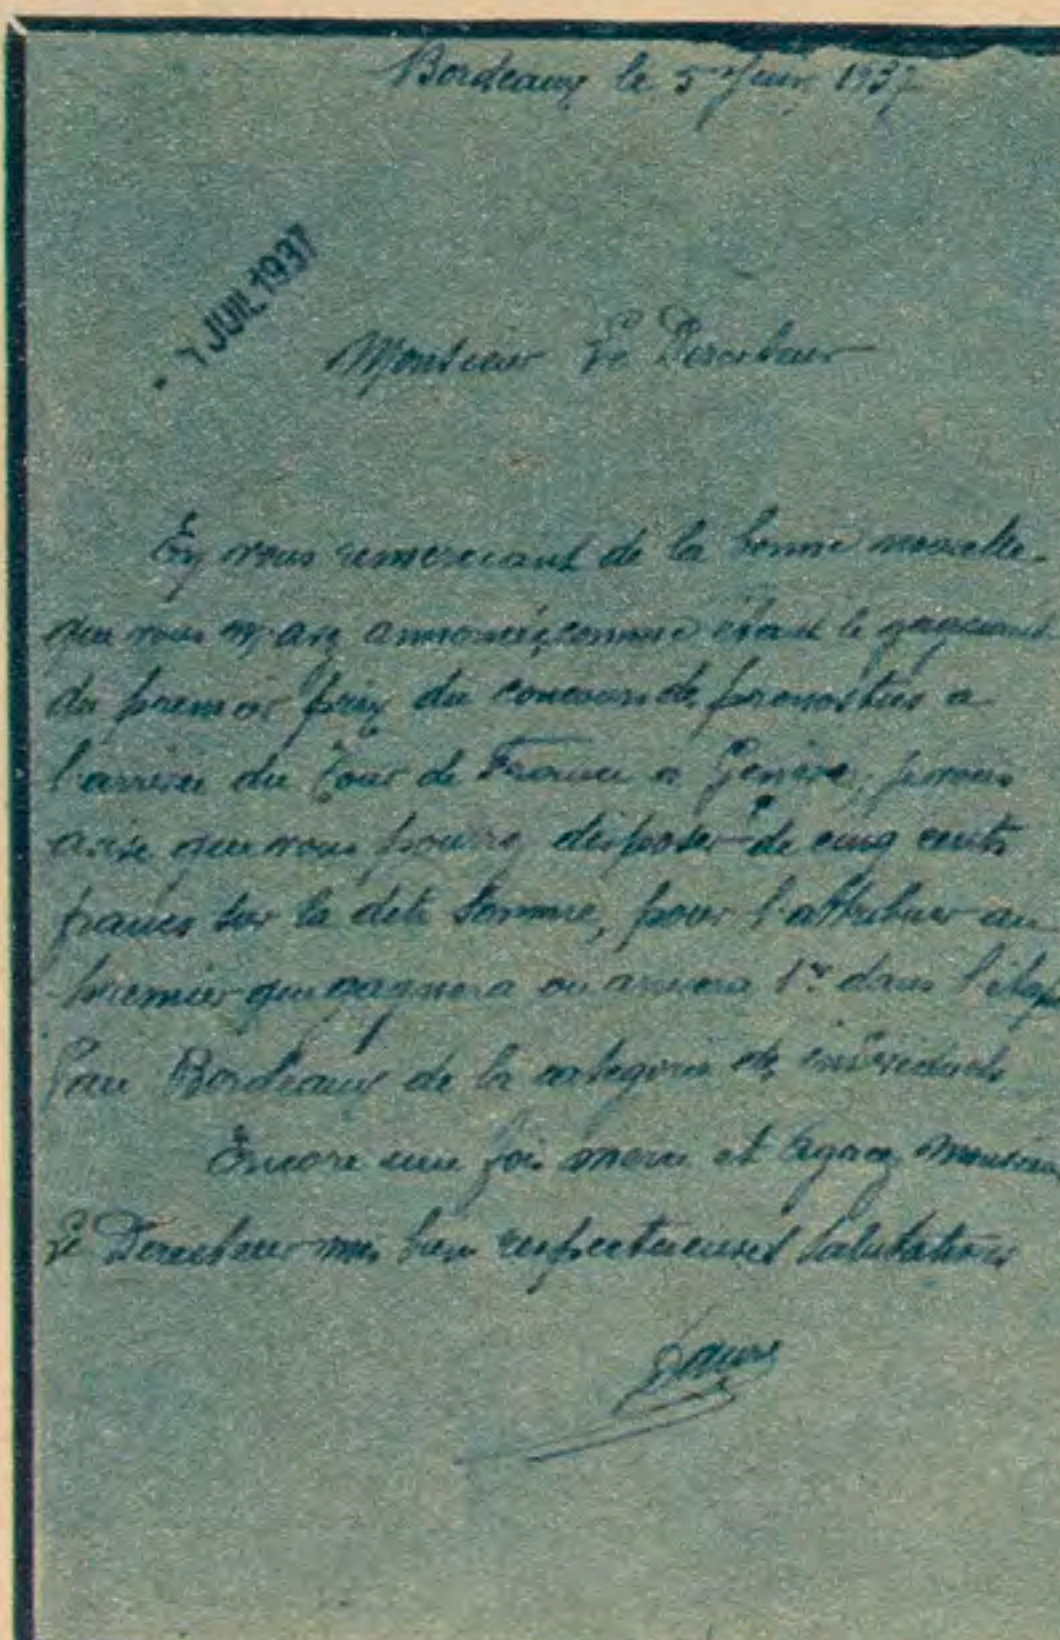 Bordeaux le 5 Juin 1937
7 JUIL 1937
Monsieur Le Directeur
En vous remerciant de la bonne nouvelle
que vous m'avez annoncée, comme étant le gagnant
du premier prix du concours de pronostics a
l'arrivée du Tour de France a Genève, je vous
avise que vous pouvez disposer de cinq cents
francs sur la dite somme, pour l'attribuer au
premier qui gagnera ou arrivera 1er dans l'étap
Pau Bordeaux de la categorie des individuels
Encore une fois merci et agréez Monsieur
Le Directeur mes bien respectueuses salutations